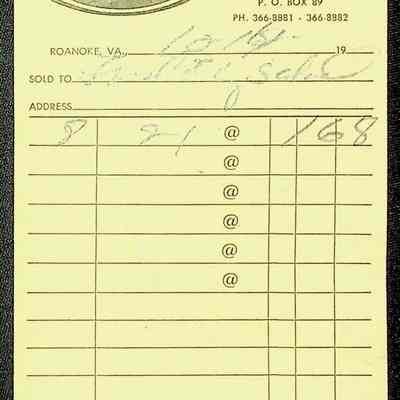 P. O. BOX 89
PH. 366-8881 • 366-8882
ROANOKE, VA., 19
SOLD TO
ADDRESS
8 21 @ 168
@
@
@
@
@